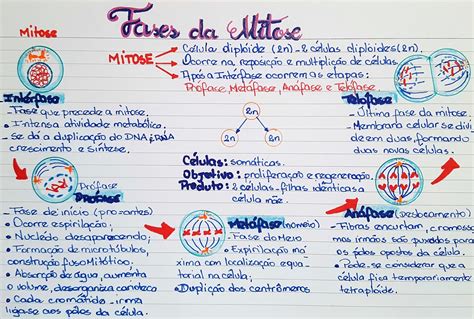 Fases da Mitose
Mitose
MITOSE
Célula diplóide (2n) - 2 células diplóides (2n).
Ocorre na reposição e multiplição de células.
Após a Interfase ocorrem as etapas:
Prófase, Metáfase, Anáfase e Telófase.
Intérfase
- Fase que precede a mitose.
• Intensa atividade metabólica.
- Se dá a duplicação do DNA
crescimento e síntese.
2n
2n
2n
Células: somáticas.
Objetivo: proliferação e regeneração.
Produto: 2 células-filhas identicas a
célula mãe.
Telófase
- Última fase da mitose.
- Membrana celular se divi
de em duas, formando
duas novas células.
Prófase
Prófase
- Fase de início (pro=antes)
• Ocorre espirilação;
- Nucléo desaparecendo;
- Formação de microtúbulos,
construção fuso Mitótico
• Absorção de água, aumenta
o volume, desorganiza carioteca
• Cada cromátide-irmã
liga-se aos pólos da célula.
Metáfase (no meio)
• Fase do Meio
- Espirilação má
xima com localização equa
torial na célula.
- Duplição dos centrômeros
Anáfase (Deslocamento)
- Fibras encurtam, cromos
mos irmãos são puxados para
os pólos opostos da célula.
- Pode-se considerar que a
célula fica temporariamente
tetraplóide.